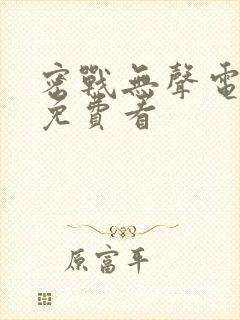 密戰無聲電
免費看
原富平